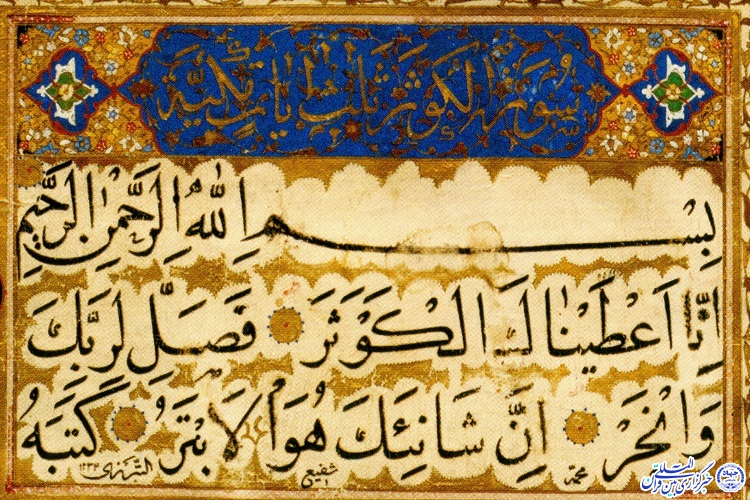 سُورَةُ الْكَوْثَرِ ثَلٰثُ اٰیَاتٍ مَكِّیَّةٌ
بِسْمِ اللّٰهِ الرَّحْمٰنِ الرَّحِيمِ
اِنَّا اَعْطَيْنَاكَ الْكَوْثَرَ فَصَلِّ لِرَبِّكَ
وَانْحَرْ اِنَّ شَانِئَكَ هُوَ الْاَبْتَرُ كَتَبَهُ
محمد شفیع التبریزی
خبرگزاری بین المللی قرآن